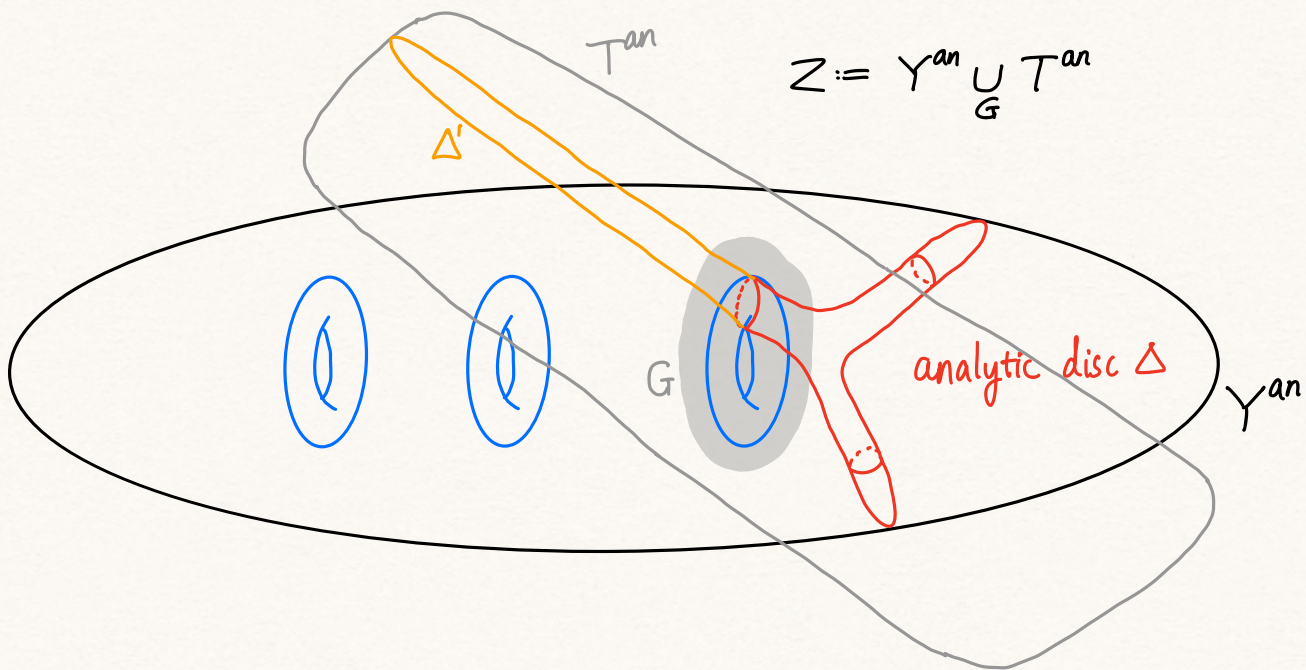 T^an
Z := Y^an ∪_G T^an
Δ'
G
analytic disc Δ
Y^an